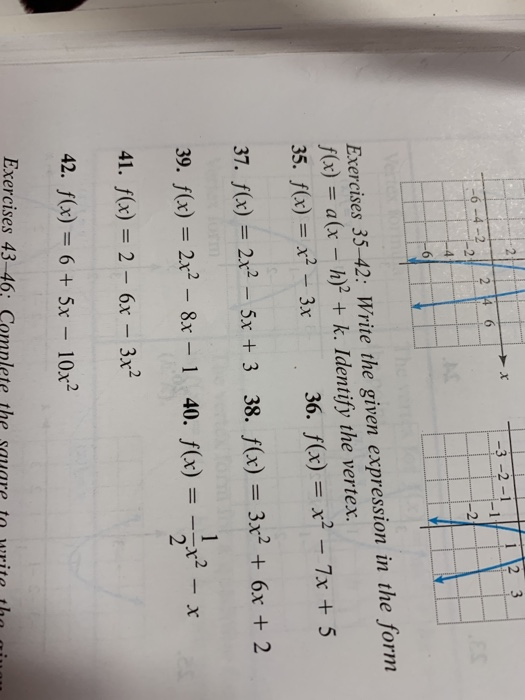 2
-6 -4 -2 2 4 6 x
-2
-4
-6
-3 -2 -1 1 2 3
-1
-2
Exercises 35–42: Write the given expression in the form
f(x) = a(x − h)² + k. Identify the vertex.
35. f(x) = x² − 3x 36. f(x) = x² − 7x + 5
37. f(x) = 2x² − 5x + 3 38. f(x) = 3x² + 6x + 2
39. f(x) = 2x² − 8x − 1 40. f(x) = −1/2x² − x
41. f(x) = 2 − 6x − 3x²
42. f(x) = 6 + 5x − 10x²
Exercises 43–46: Complete the square to write the given